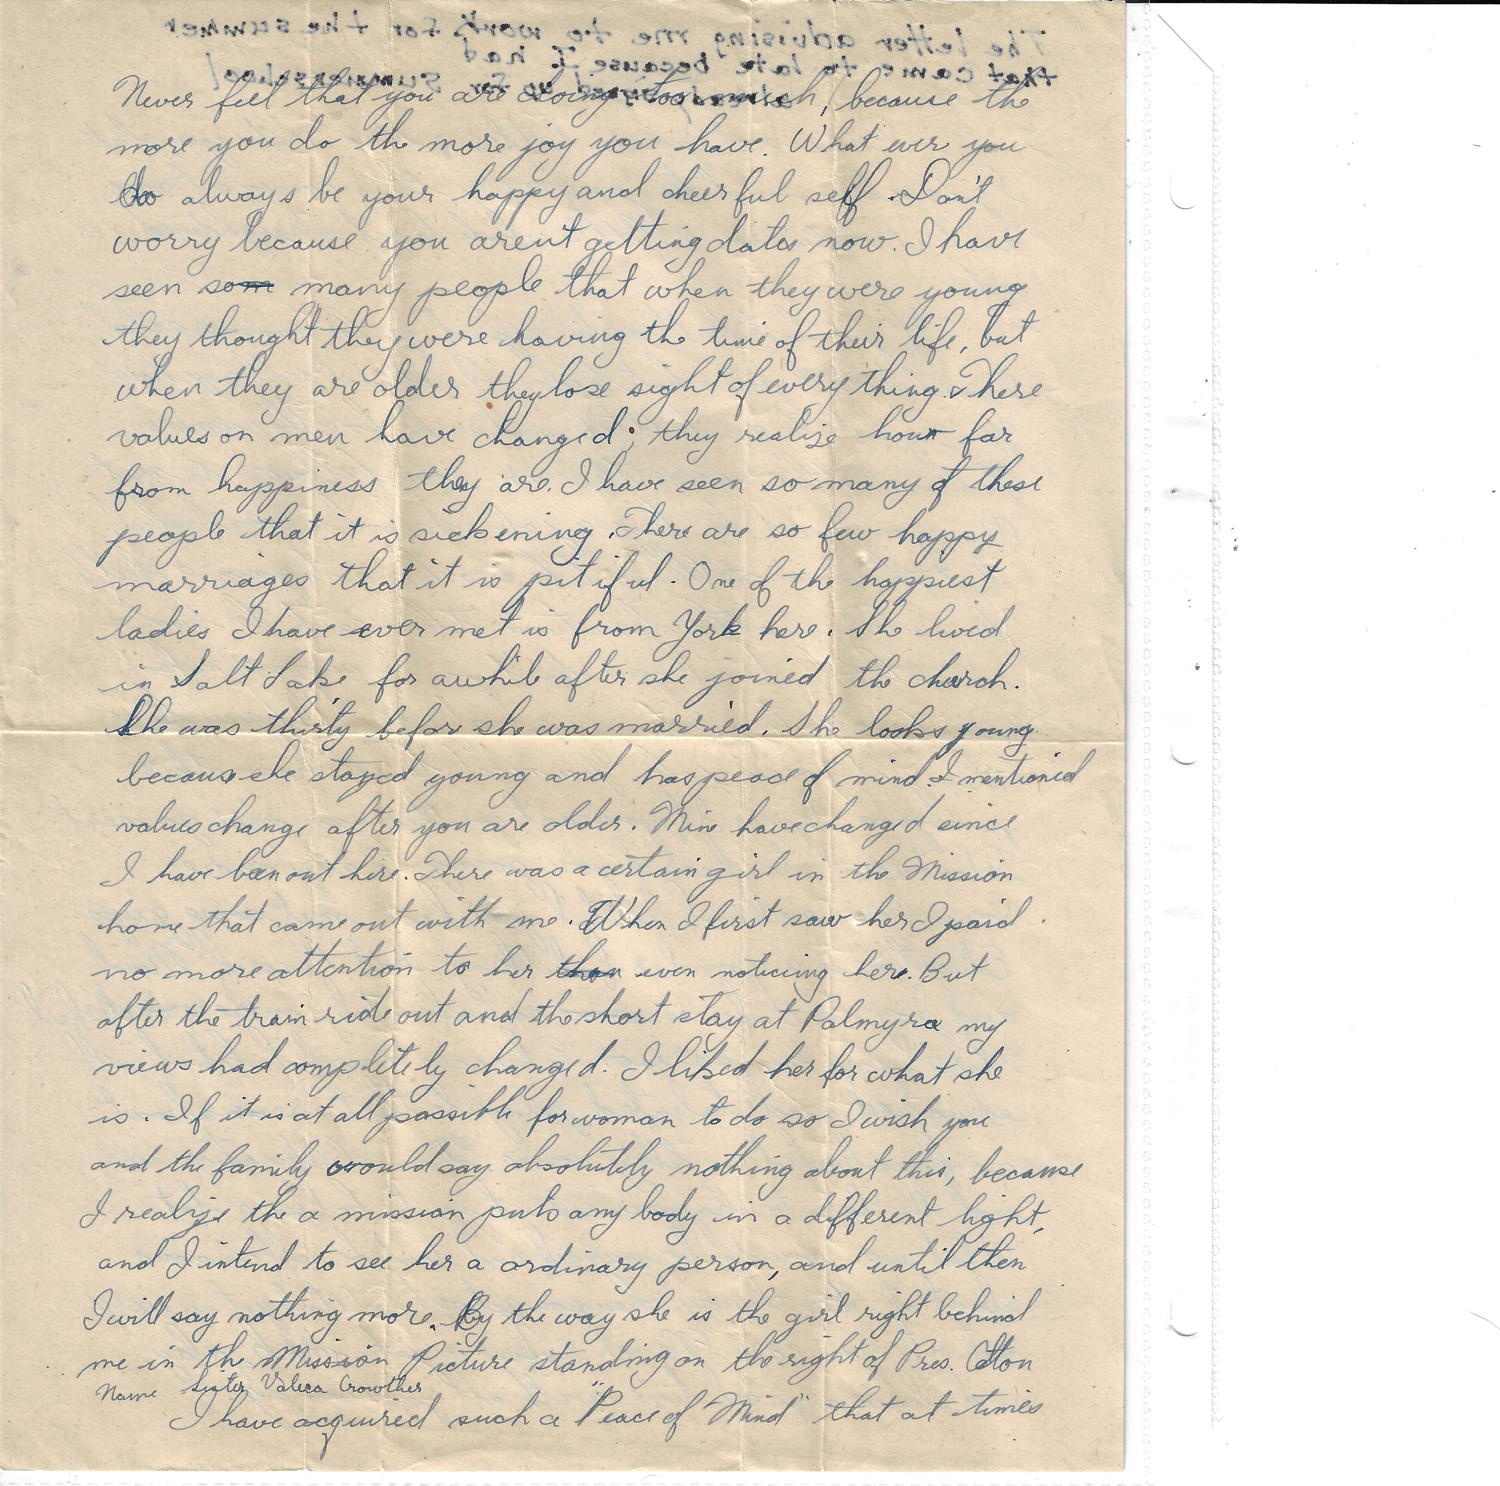 The letter advising me to work for the summer
that came to late because I had
already signed up for Summerschool
Never feel that you are doing too much, because the
more you do the more joy you have. What ever you
do always be your happy and cheerful self. Don't
worry because you aren't getting dates now. I have
seen som many people that when they were young
they thought they were having the time of their life, but
when they are older they lose sight of every thing. There
values on men have changed; they realize how far
from happiness they are. I have seen so many of these
people that it is sickening. There are so few happy
marriages that it is pitiful. One of the happiest
ladies I have ever met is from York here. She lived
in Salt Lake for awhile after she joined the church.
She was thirty before she was married. She looks young
because she stayed young and has peace of mind. I mentioned
values change after you are older. Mine have changed since
I have been out here. There was a certain girl in the Mission
home that came out with me. When I first saw her I paid
no more attention to her than even noticing here. But
after the train ride out and the short stay at Palmyra my
views had completely changed. I liked her for what she
is. If it is at all possible for woman to do so I wish you
and the family would say absolutely nothing about this, because
I realize the a mission puts any body in a different light,
and I intend to see her a ordinary person, and until then
I will say nothing more. By the way she is the girl right behind
me in the Mission Picture standing on the right of Pres. Colton
Name Sister Valeea Crowther
I have acquired such a "Peace of Mind" that at times